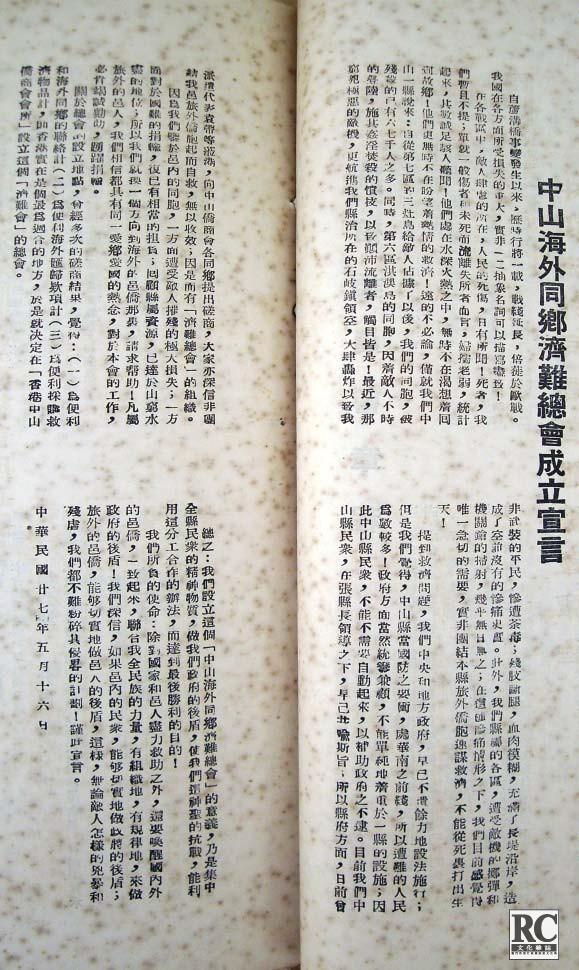 中山海外同鄉濟難總會成立宣言
自蘆溝橋事變發生以來，無時行將一載，戰綫延長，倍徒於歐戰。
我國在各方面所受損失的重大，實非一二抽象名詞可以描寫盡致！
在各戰區中，敵人肆虐的所在，人民的死傷，日有所聞！死者，我
們暫且不提；單就一般傷者和未死而流離失所者而言，婦孺老弱，統計
起來，其數誠足駭人聽聞！他們處在水深火熱之中，無時不在渴想着回
到故鄉！他們更無時不在盼望着熱情的救濟！遠的不必論，僅就我們中
山一縣說來：自從第七區的三灶島給敵人佔據了以後，我們的同胞，被
殘殺的已有六七千人之多。同時，第六區淇澳島的同胞，因着敵人不時
的登陸，施其姦淫殺的慣技，以致顛沛流離者，觸目皆是！最近，那
窮兇極惡的敵機，更航進我們縣治所在的石岐鎮領空，大肆轟炸以致我
非武裝的平民，慘遭荼毒；殘肢斷腿，血肉模糊，充滿了長堤沿岸，造
成了空前沒有的慘痛史實。此外，我們縣屬的各區，遭受敵機的擲彈和
機關鎗的掃射，幾乎無日無之；在這種慘痛情形之下，我們目前感覺到
唯一急切的需要，實非團結本縣旅外僑胞速謀救濟，不能從死裏打出生
天！
提到救濟問題，我們中央和地方政府，早已不遺餘力地設法施行；
但是我們覺得，中山縣當國防之要衝，處華南之前綫，所以遭難的人民
為數較多！政府方面當然統籌兼顧，不能單純地着重於一縣的設施；因
此中山縣民衆，不能不需要自動起來，以補助政府之不逮。目前我們中
山縣民衆，在張縣長領導之下，早已共喻斯旨，所以縣府方面，日前曾
派遣代表袁帶等赴港，向中山僑商會各同鄉提出磋商，大家亦深信非團
結我邑旅外僑胞起而自救，無以收效；於是而有「濟難總會」的組織。
因為我們鑒於邑內的同胞，一方面遭受敵人摧殘的極大損失；一方
面對於國難的捐輸，復已有相當的担負；囘顧縣屬資源，已達於山窮水
盡的地位；所以我們就換一個方向到海外的邑僑那裏，請求帮助！凡屬
旅外的邑人，我們相信都具有同一愛鄉愛國的熱念，對於本會的工作，
必肯竭誠勷助，踴躍捐輸。
關於總會的設立地點，曾經多次的磋商結果，覺得：（一）為便利
和海外同鄉的聯絡計（二）為便利海外匯歸欵項計（三）為便利採購救
濟物品計，則香港實在是個最為適合的地方，於是就决定在「香港中山
僑商會會所」設立這個「濟難會」的總會。
總之：我們設立這個「中山海外同鄉濟難總會」的意義，乃是集中
全縣民衆的精神物質，做我們政府的後盾，使我們這神聖的抗戰，能利
用這分工合作的辦法，而達到最後勝利的目的！
我們所負的使命：除對國家和邑人盡力救助之外，還要喚醒國內外
的邑僑，一致起來，聯合我全民族的力量，有組織地，有規律地，來做
政府的後盾！我們深信，如果邑內的民衆，能够切實地做政府的後盾；
旅外的邑僑，能够切實地做邑人的後盾，這樣，無論敵人怎樣的兇暴和
殘虐，我們都不難粉碎其侵畧的計劃！謹此宣言。
中華民國廿七年五月十六日
RC
文化雜誌